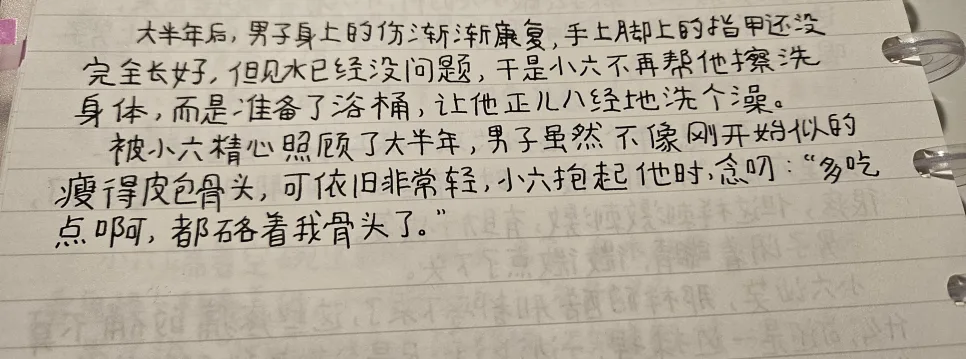 大半年后，男子身上的伤渐渐康复，手上脚上的指甲还没
完全长好，但见水已经没问题，于是小六不再帮他擦洗
身体，而是准备了浴桶，让他正儿八经地洗个澡。
被小六精心照顾了大半年，男子虽然不像刚开始似的
瘦得皮包骨头，可依旧非常轻，小六抱起他时，念叨：“多吃
点啊，都硌着我骨头了。”